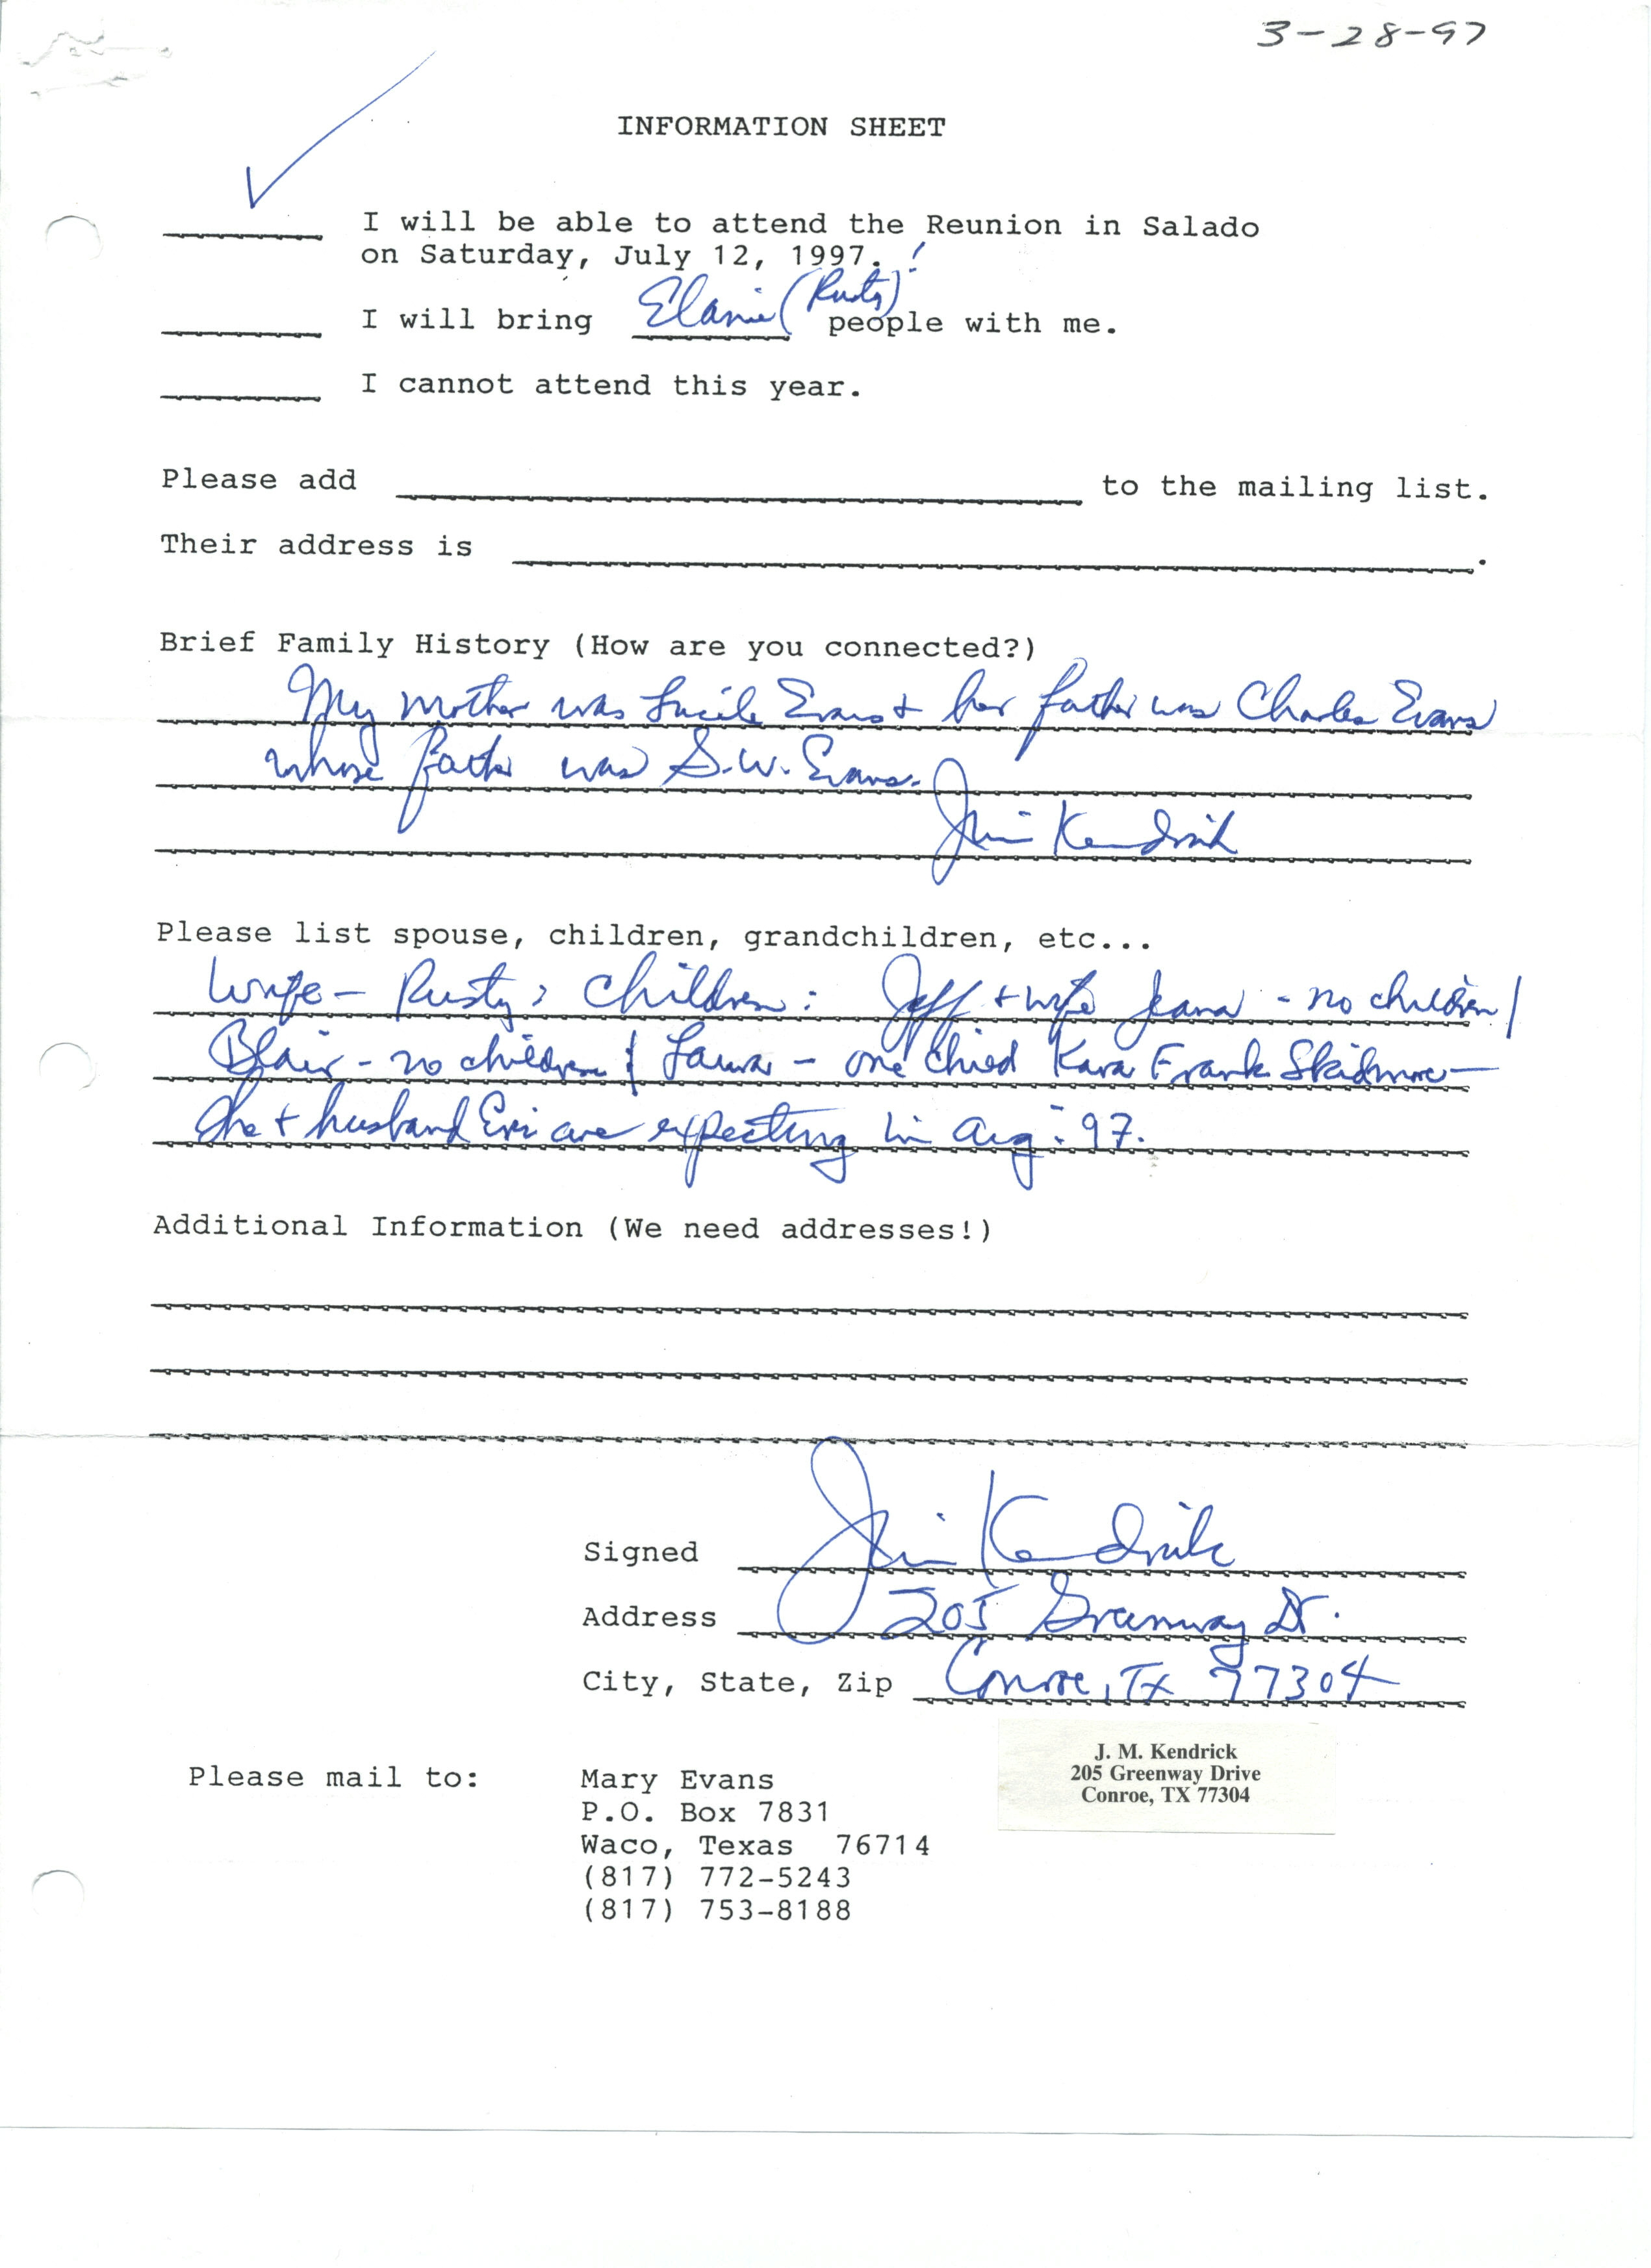 3-28-97
INFORMATION SHEET
I will be able to attend the Reunion in Salado
on Saturday, July 12, 1997. !
I will bring Elanie (Rusty) people with me.
I cannot attend this year.
Please add to the mailing list.
Their address is .
Brief Family History (How are you connected?)
My mother was Lucile Evans + her father was Charles Evans
whose father was S.W. Evans.
Jim Kendrick
Please list spouse, children, grandchildren, etc...
Wife - Rusty, Children: Jeff + wife Jeana - no children/
Blair - no children & Laura - one child Kara Frank Skidmore -
She + husband are expecting in Aug. 97.
Additional Information (We need addresses!)
Signed Jim Kendrick
Address 205 Greenway Dr.
City, State, Zip Conroe, TX 77304
J. M. Kendrick
205 Greenway Drive
Conroe, TX 77304
Please mail to: Mary Evans
P.O. Box 7831
Waco, Texas 76714
(817) 772-5243
(817) 753-8188